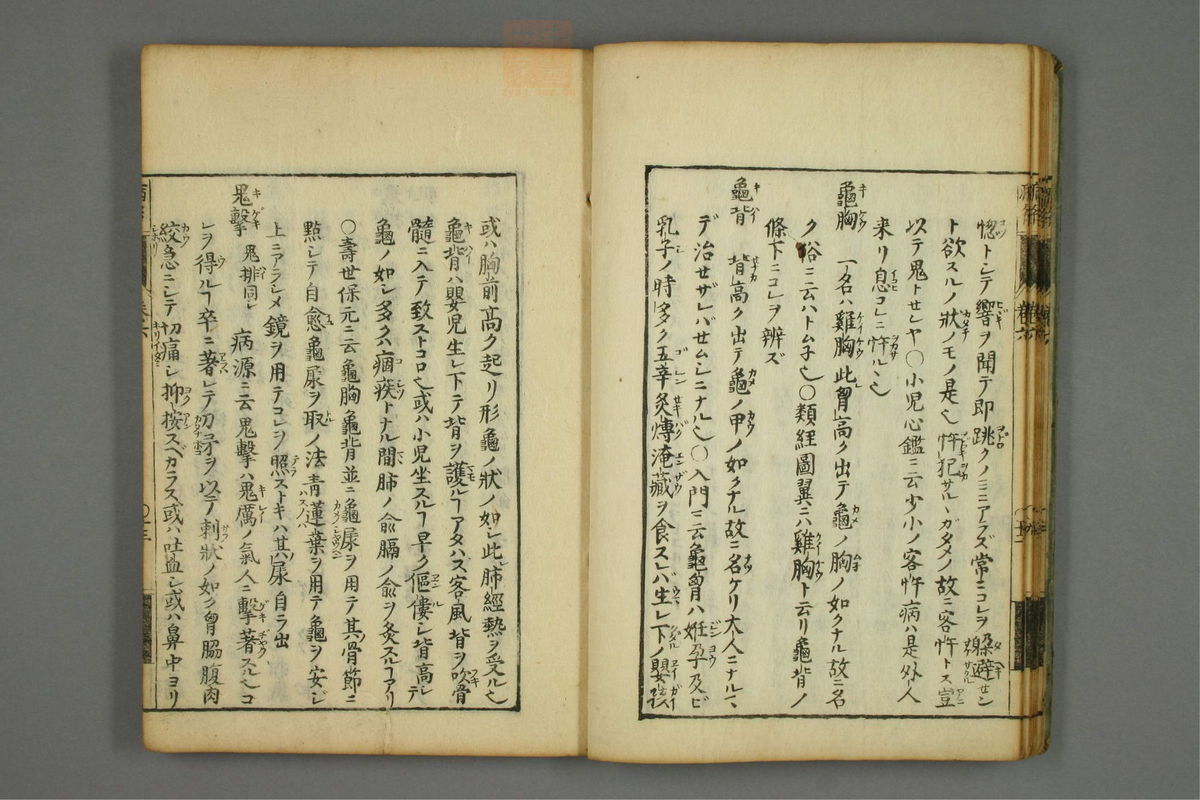 惚トシテ響ヲ聞テ即跳クノミニアラズ常ニコレヲ躱避セン
ト欲スルノ狀ノモノ是也忤犯サルヽガタメノ故ニ客忤トス豈
以テ鬼トセンヤ〇小児心鑑ニ云少小ノ客忤病ハ是外人
来リ息コレニ忤ルヽ也
龜胸 一名ハ雞胸此胷高ク出テ龜ノ胸ノ如クナル故ニ名
ク俗ニ云ハト厶子也〇類経圖翼ニハ雞胸ト云リ龜背ノ
條下ニコレヲ辨ズ
龜背 背高ク出テ龜ノ甲ノ如クナル故ニ名ケリ大人ニナルマ
デ治セザレバセムシニナル也〇入門ニ云龜胷ハ姙孕及ビ
乳子ノ時多ク五辛灸煿淹藏ヲ食スレバ生レ下ノ嬰孩
或ハ胸前高ク起リ形龜ノ狀ノ如シ此肺經熱ヲ受ル也
龜背ハ嬰児生レ下テ背ヲ護ルヿアタハズ客風背ヲ吹骨
髓ニ入テ致ストコロ也或ハ小児坐スルヿ早ク傴僂シ背高シ
龜ノ如シ多クハ痼疾トナル間肺ノ兪膈ノ兪ヲ灸スルヿアリ
〇壽世保元ニ云龜胸龜背並ニ龜尿ヲ用テ其骨節ニ
點シテ自愈龜尿ヲ取ノ法青蓮葉ヲ用テ龜ヲ安ジ
上ニアラシメ鏡ヲ用テコレヲ照ストキハ其尿自ラ出
鬼擊 鬼排同シ 病源ニ云鬼擊ハ鬼厲ノ氣人ニ擊著スル也コ
レヲ得ルヿ卒ニ著レテ刀矛ヲ以テ刺狀ノ如ク胷脇腹肉
絞急ニシテ切痛シ抑按スベカラス或ハ吐血シ或ハ鼻中ヨリ